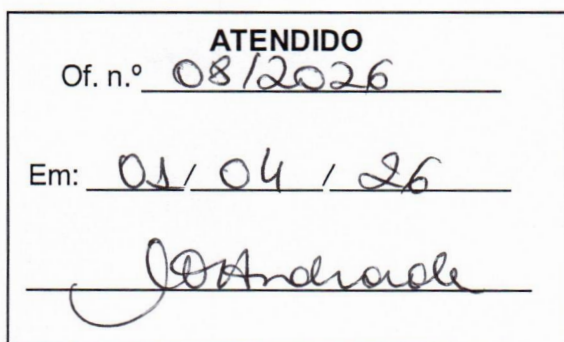 ATENDIDO
Of. n.º 08/2026
Em: 01/04/26
Andrade